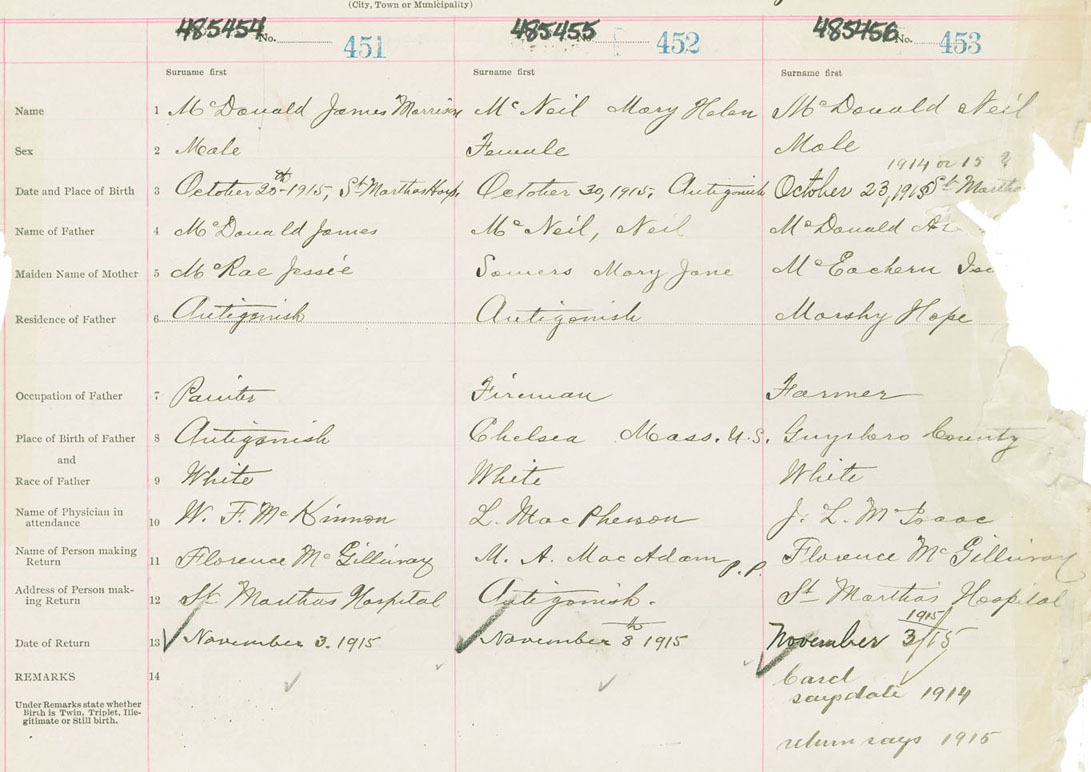 (City, Town or Municipality)
485454 No. 451 485455 No. 452 485456 No. 453
Surname first Surname first Surname first
Name 1 McDonald James Morrison McNeil Mary Helen McDonald Neil
Sex 2 Male Female Male
1914 or 15 ?
Date and Place of Birth 3 October 25th 1915, St Marthas Hosp October 30, 1915, Antigonish October 23, 1915 St Martha
Name of Father 4 McDonald James McNeil, Neil McDonald
Maiden Name of Mother 5 McRae Jessie Somers Mary Jane McEachern Isa
Residence of Father 6 Antigonish Antigonish Marshy Hope
Occupation of Father 7 Painter Fireman Farmer
Place of Birth of Father 8 Antigonish Chelsea Mass. U.S. Guysboro County
and
Race of Father 9 White White White
Name of Physician in
attendance 10 W. F. McKinnon L. MacPherson J. L. McIsaac
Name of Person making
Return 11 Florence McGillivray M. A. MacAdam P.P. Florence McGillivray
Address of Person mak-
ing Return 12 St Marthas Hospital Antigonish. St Martha's Hospital
1915
Date of Return 13 November 3. 1915 November 8th 1915 November 3/15
REMARKS 14 Card
says date 1914
Under Remarks state whether
Birth is Twin, Triplet, Ille-
gitimate or Still birth.
return says 1915